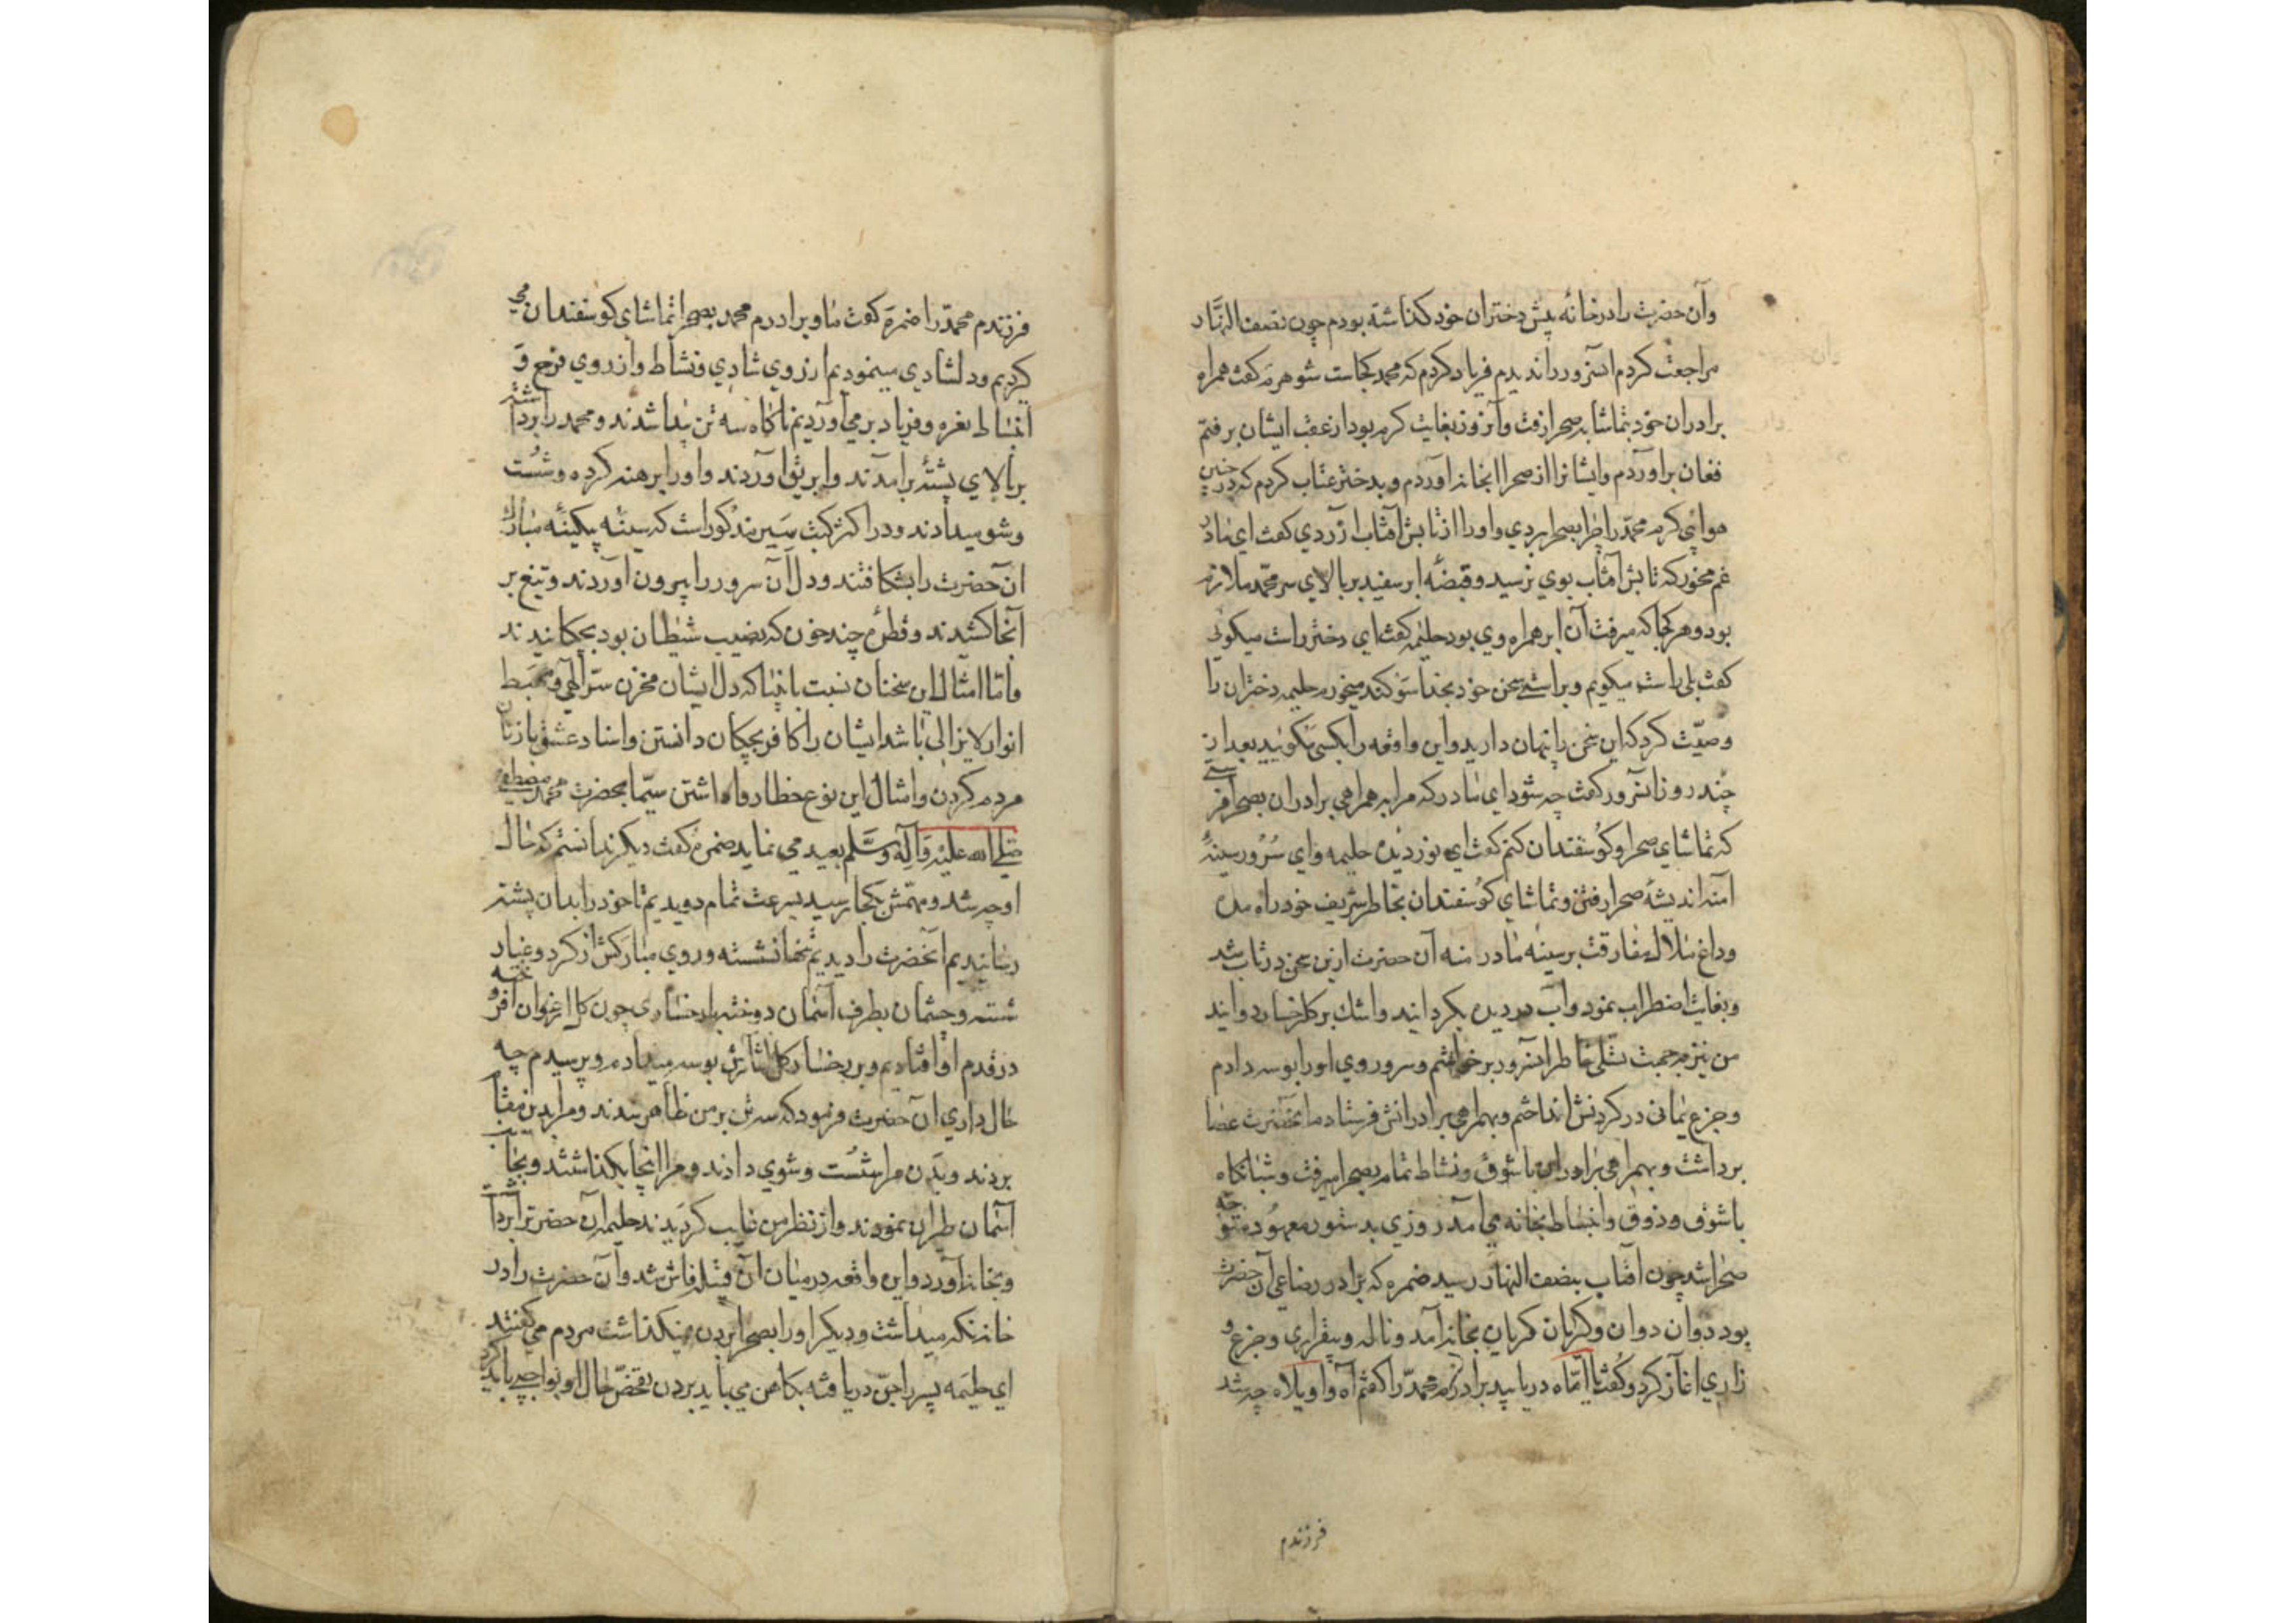 وآن حضرت را در خانه پیش دختران خود گذاشته بودم چون نصف النهار
مراجعت کردم آنسرور را ندیدم فریاد کردم که محمد کجاست شوهرم گفت همراه
برادران خود بتماشا بصحرا رفت وآنروز بغایت گرم بود از عقب ایشان برفتم
فغان برآوردم وایشانرا از صحرا بخانه آوردم وبدختر عتاب کردم که در چنین
هوائی گرم محمد را چرا بصحرا بردی واورا از تابش آفتاب آزردی گفت ای مادر
غم مخور که تابش آفتاب بوی نرسید وقبضهٔ ابر سفید بر بالای سر محمد ملازم
بود وهر کجا که میرفت آن ابر همراه وی بود حلیمه گفت ای دختر راست میگوئی
گفت بلی راست میگویم وبراستی سخن خود بخدا سوگند میخورم حلیمه دختران را
وصیت کرد که این سخن را پنهان دارید واین واقعه را بکسی نگوئید بعد از
چند روز آنسرور گفت چه شود ای مادر که مرا به همراهی برادران بصحرا فرستی
که تماشای صحرا وگوسفندان کنم گفت ای نور دیده حلیمه وای سرور سینهٔ
آمنه اندیشهٔ صحرا رفتن وتماشای گوسفندان بخاطر شریف خود راه مده
وداغ ملال مفارقت بر سینه مادر منه آن حضرت ازین سخن در تاب شد
وبغایت اضطراب نمود وآب در دیده بگردانید واشک بر گل رخسار دوانید
من نیز بجهت تسلی خاطر آنسرور برخواستم وسر وروی اورا بوسه دادم
وجزع یمانی در گردنش انداختم وبهمراهی برادرانش فرستادم آنحضرت عصا
برداشت وبهمراهی برادران با شوق ونشاط تمام بصحرا میرفت وشبانگاه
با شوق وذوق وانبساط بخانه می آمد روزی بدستور معهود متوجه
صحرا شد چون آفتاب بنصف النهار رسید ضمره که برادر رضاعی آن حضرت
بود دوان دوان وگریان گریان بخانه آمد وناله وبیقراری وجزع و
زاری آغاز کرد وگفت یا اماه دریابید برادرم محمد را گفتم آه واویلاه چه شد
فرزندم
فرزندم محمد را ضمره گفت ما وبرادرم محمد بصحرا تماشای گوسفندان می
کردیم ودلشادی مینمودیم از روی شادی ونشاط واز روی فرح و
انبساط نعره وفریاد بر می آوردیم ناگاه سه تن پیدا شدند ومحمد را برداشته
بر بالای پشتهٔ برآمدند وابریق آوردند واورا برهنه کرده وشست
وشو میدادند ودر اکثر کتب سیر مذکور است که سینهٔ بیکینهٔ مبارک
آن حضرت را بشکافتند ودل آن سرور را بیرون آوردند وتیغ بر
آنجا کشیدند وقطرهٔ چند خون که نصیب شیطان بود بچکانیدند
واما امثال این سخنان نسبت بانبیا که دل ایشان مخزن سر الهی ومهبط
انوار لایزالی باشد ایشان را کافر بچگان دانستن واسناد عشق با زنان
مردم کردن وامثال این نوع خطا روا داشتن سیما بحضرت محمد مصطفی
صلی الله علیه وآله وسلم بعید می نماید ضمره گفت دیگر ندانستم که حال
او چه شد ومهمش بکجا رسید بسرعت تمام دویدیم تا خود را بدان پشته
رسانیدیم آنحضرت را دیدیم تنها نشسته وروی مبارکش از گرد وغبار
شسته وچشمان بطرف آسمان دوخته با رخساری چون گل ارغوان افروخته
در قدم او افتادیم وبر رخسار گل آسایش بوسه میدادم وپرسیدم چه
حال داری آن حضرت فرمود که سه تن بر من ظاهر شدند ومرا بدین مقام
بردند وبدن مرا شست وشوی دادند ومرا اینجا بگذاشتند وبجانب
آسمان طیران نمودند واز نظر من غایب گردیدند حلیمه آن حضرت را برداشت
وبخانه آورد واین واقعه در میان آن قبیله فاش شد وآن حضرت را در
خانه نگه میداشت ودیگر اورا بصحرا بردن نمیگذاشت مردم می گفتند
ای حلیمه پسر را جن دریافته بکاهن می باید بردن تفحص حال او بواجبی باید کرد